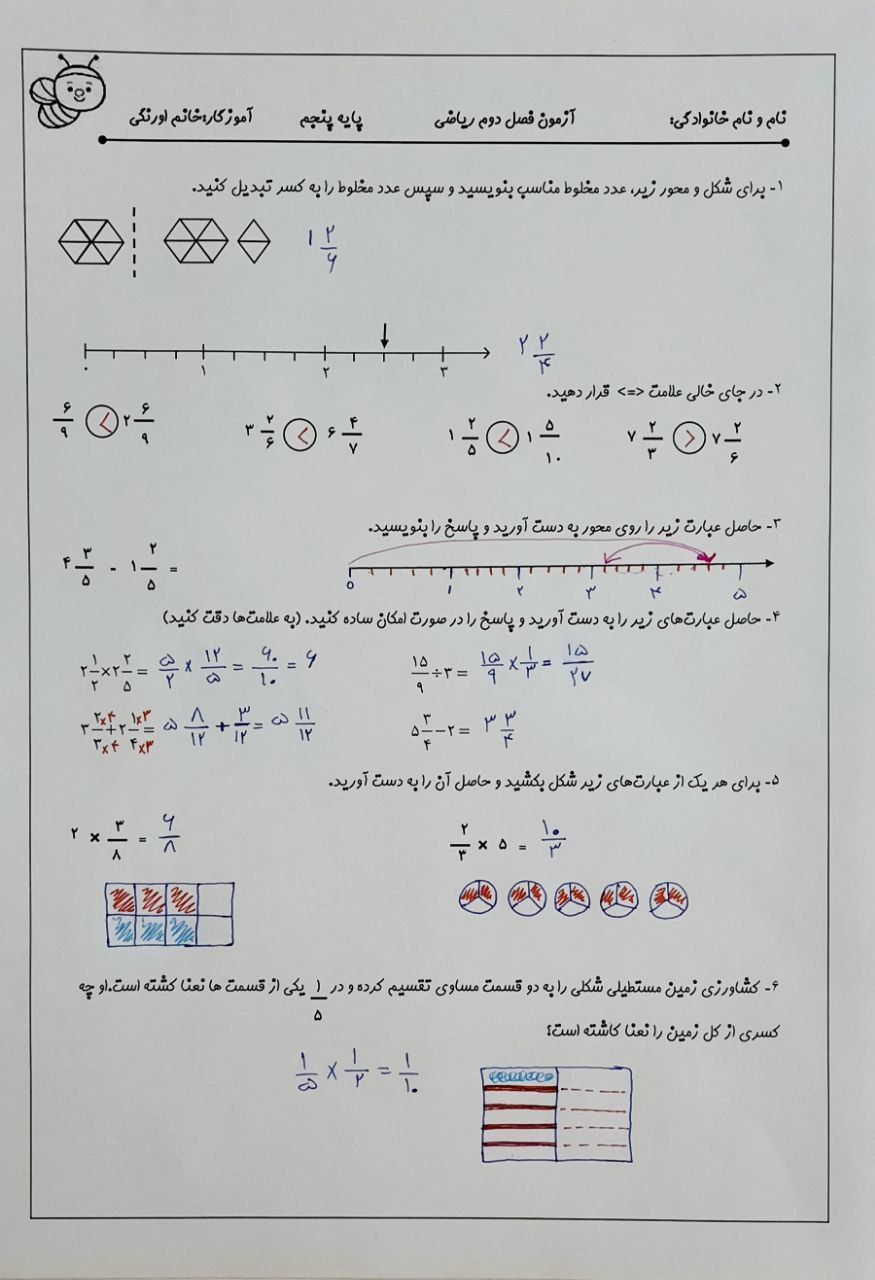 نام و نام خانوادگی: آزمون فصل دوم ریاضی پایه پنجم آموزگار:خانم اورنگی
۱- برای شکل و محور زیر، عدد مخلوط مناسب بنویسید و سپس عدد مخلوط را به کسر تبدیل کنید.
۱ ۲/۶
۰ ۱ ۲ ۳
۲ ۲/۴
۲- در جای خالی علامت <=> قرار دهید.
۶/۹ < ۲ ۶/۹
۳ ۲/۶ < ۶ ۴/۷
۱ ۲/۵ < ۱ ۵/۱۰
۷ ۲/۳ > ۷ ۲/۶
۳- حاصل عبارت زیر را روی محور به دست آورید و پاسخ را بنویسید.
۴ ۳/۵ - ۱ ۲/۵ =
۰ ۱ ۲ ۳ ۴ ۵
۴- حاصل عبارت‌های زیر را به دست آورید و پاسخ را در صورت امکان ساده کنید. (به علامت‌ها دقت کنید)
۲ ۱/۲ × ۲ ۲/۵ = ۵/۲ × ۱۲/۵ = ۶۰/۱۰ = ۶
۱۵/۹ ÷ ۳ = ۱۵/۹ × ۱/۳ = ۱۵/۲۷
۳ ۲×۴/۳×۴ + ۲ ۱×۳/۴×۳ = ۵ ۸/۱۲ + ۳/۱۲ = ۵ ۱۱/۱۲
۵ ۳/۴ - ۲ = ۳ ۳/۴
۵- برای هر یک از عبارت‌های زیر شکل بکشید و حاصل آن را به دست آورید.
۲ × ۳/۸ = ۶/۸
۲/۳ × ۵ = ۱۰/۳
۶- کشاورزی زمین مستطیلی شکلی را به دو قسمت مساوی تقسیم کرده و در ۱/۵ یکی از قسمت ها نعنا کشته است.او چه
کسری از کل زمین را نعنا کاشته است؟
۱/۵ × ۱/۲ = ۱/۱۰